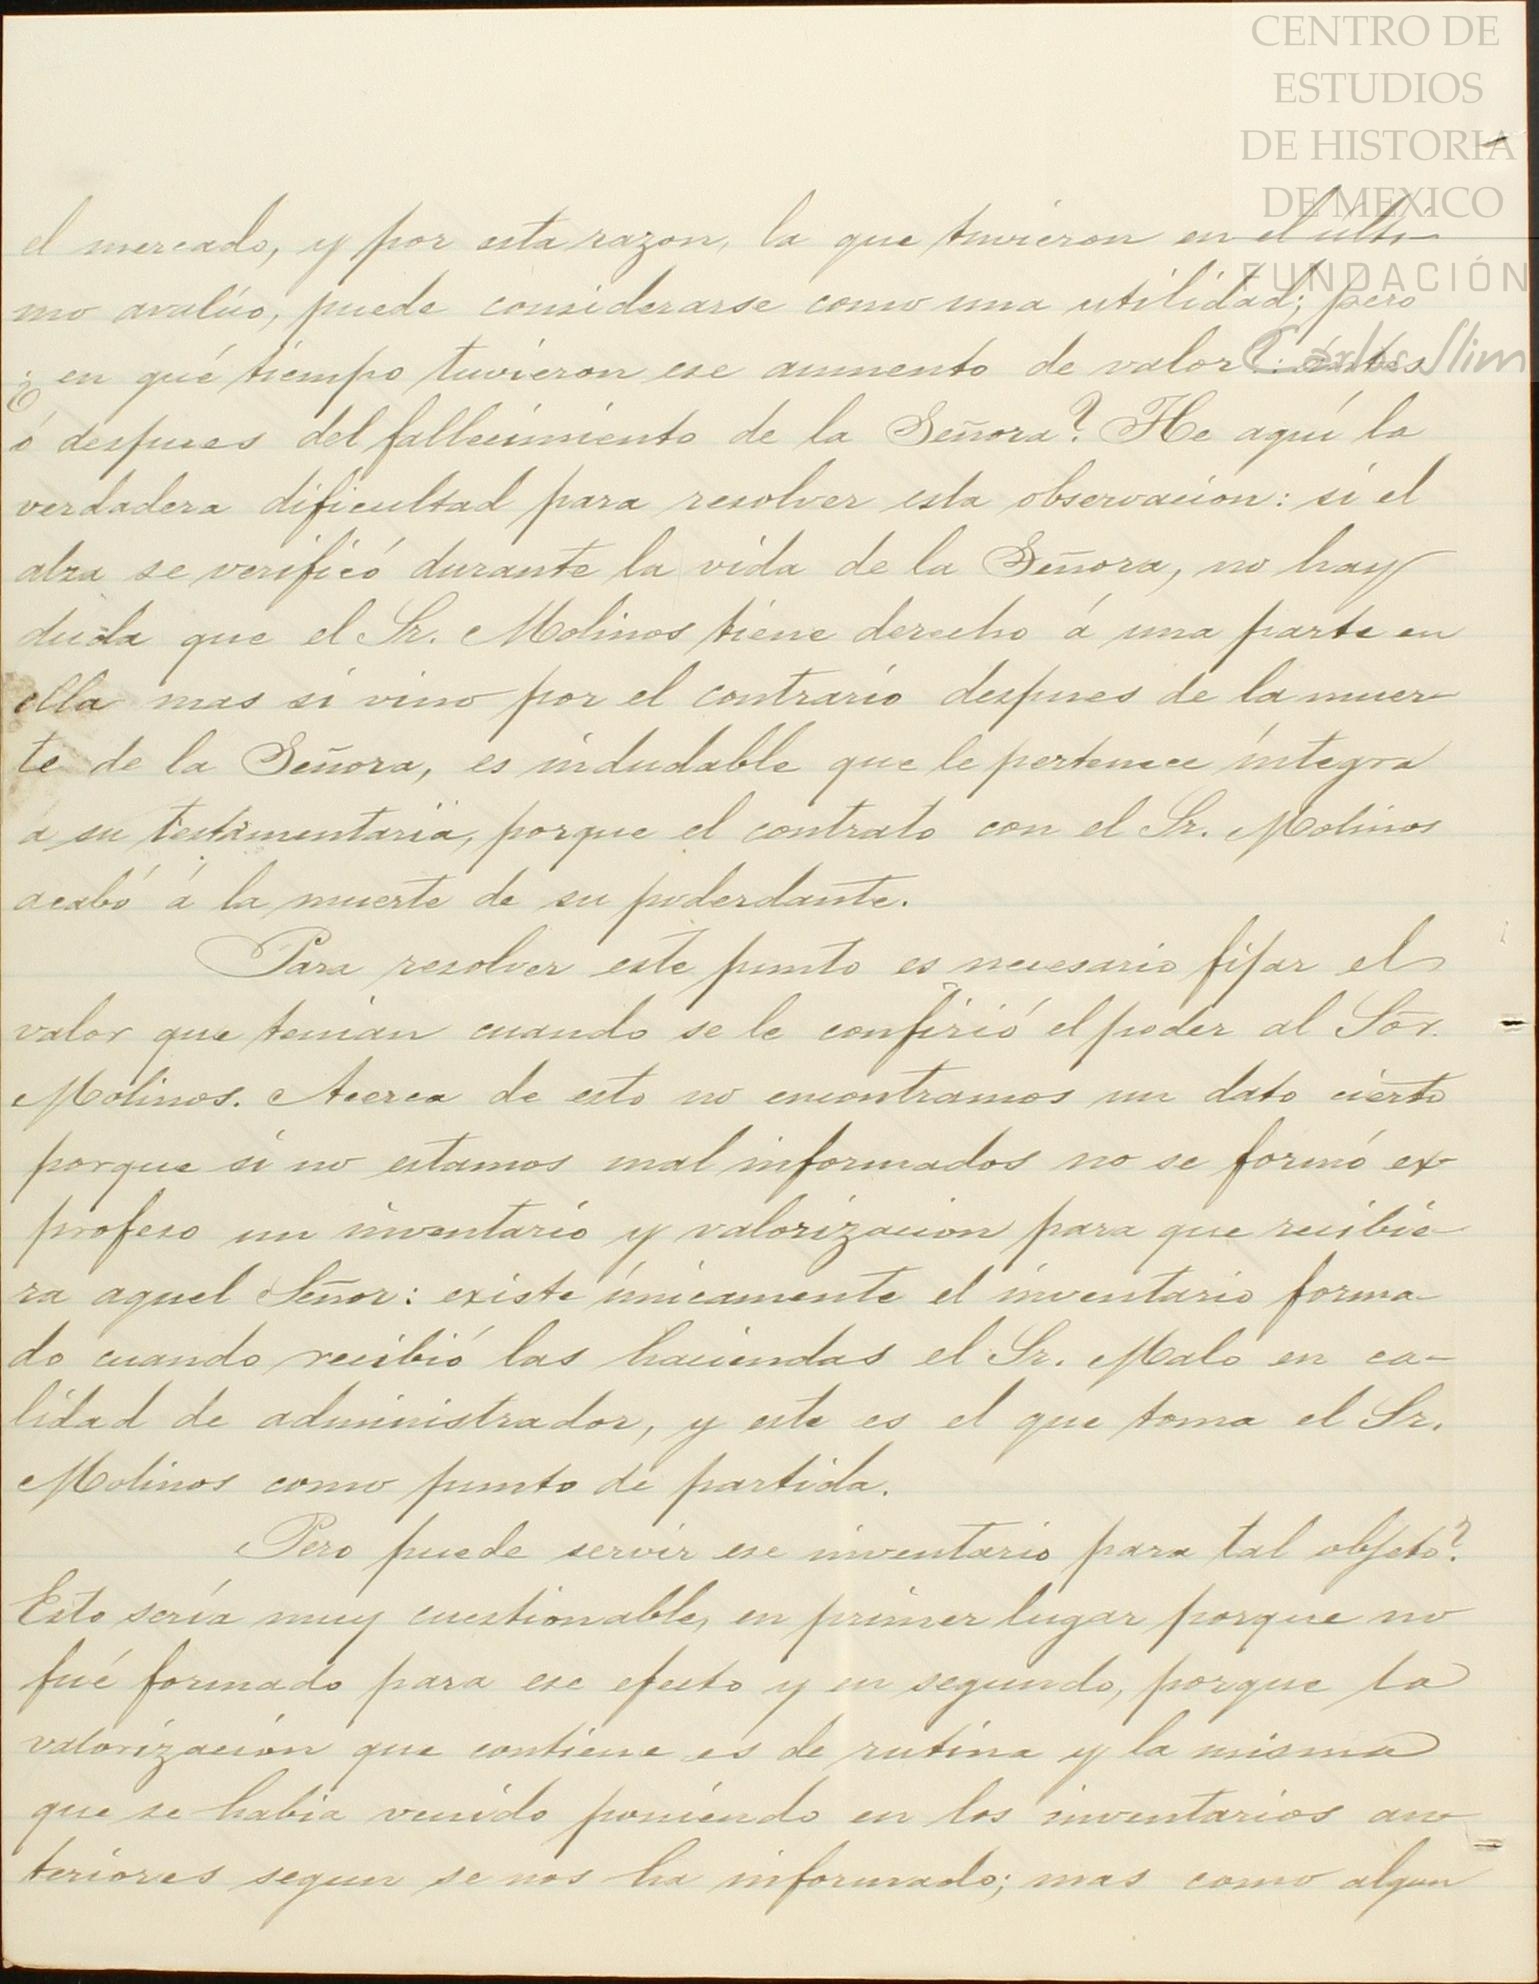 CENTRO DE
ESTUDIOS
DE HISTORIA
DE MEXICO
FUNDACIÓN
Carlos Slim
el mercado, y por esta razon, la que tuvieron en el últi-
mo avalúo, puede considerarse como una utilidad; pero
¿en qué tiempo tuvieron ese aumento de valor?: ántes
ó despues del fallecimiento de la Señora? He aquí la
verdadera dificultad para resolver esta observacion: si el
alza se verificó durante la vida de la Señora, no hay
duda que el Sr. Molinos tiene derecho á una parte en
ella mas si vino por el contrario despues de la muer-
te de la Señora, es indudable que le pertenece íntegra
á su testamentaría, porque el contrato con el Sr. Molinos
acabó á la muerte de su poderdante.
Para resolver este punto es necesario fijar el
valor que tenian cuando se le confirió el poder al Sõr.
Molinos. Acerca de esto no encontramos un dato cierto
porque si no estamos mal informados no se formó ex-
profeso un inventario y valorizacion para que recibie-
ra aquel Señor: existe únicamente el inventario forma-
do cuando recibió las haciendas el Sr. Malo en ca-
lidad de administrador, y este es el que toma el Sr.
Molinos como punto de partida.
Pero puede servir ese inventario para tal objeto?
Esto sería muy cuestionable, en primer lugar porque no
fué formado para ese efecto y en segundo, porque la
valorización que contiene es de rutina y la misma
que se habia venido poniendo en los inventarios an-
teriores segun se nos ha informado; mas como algun